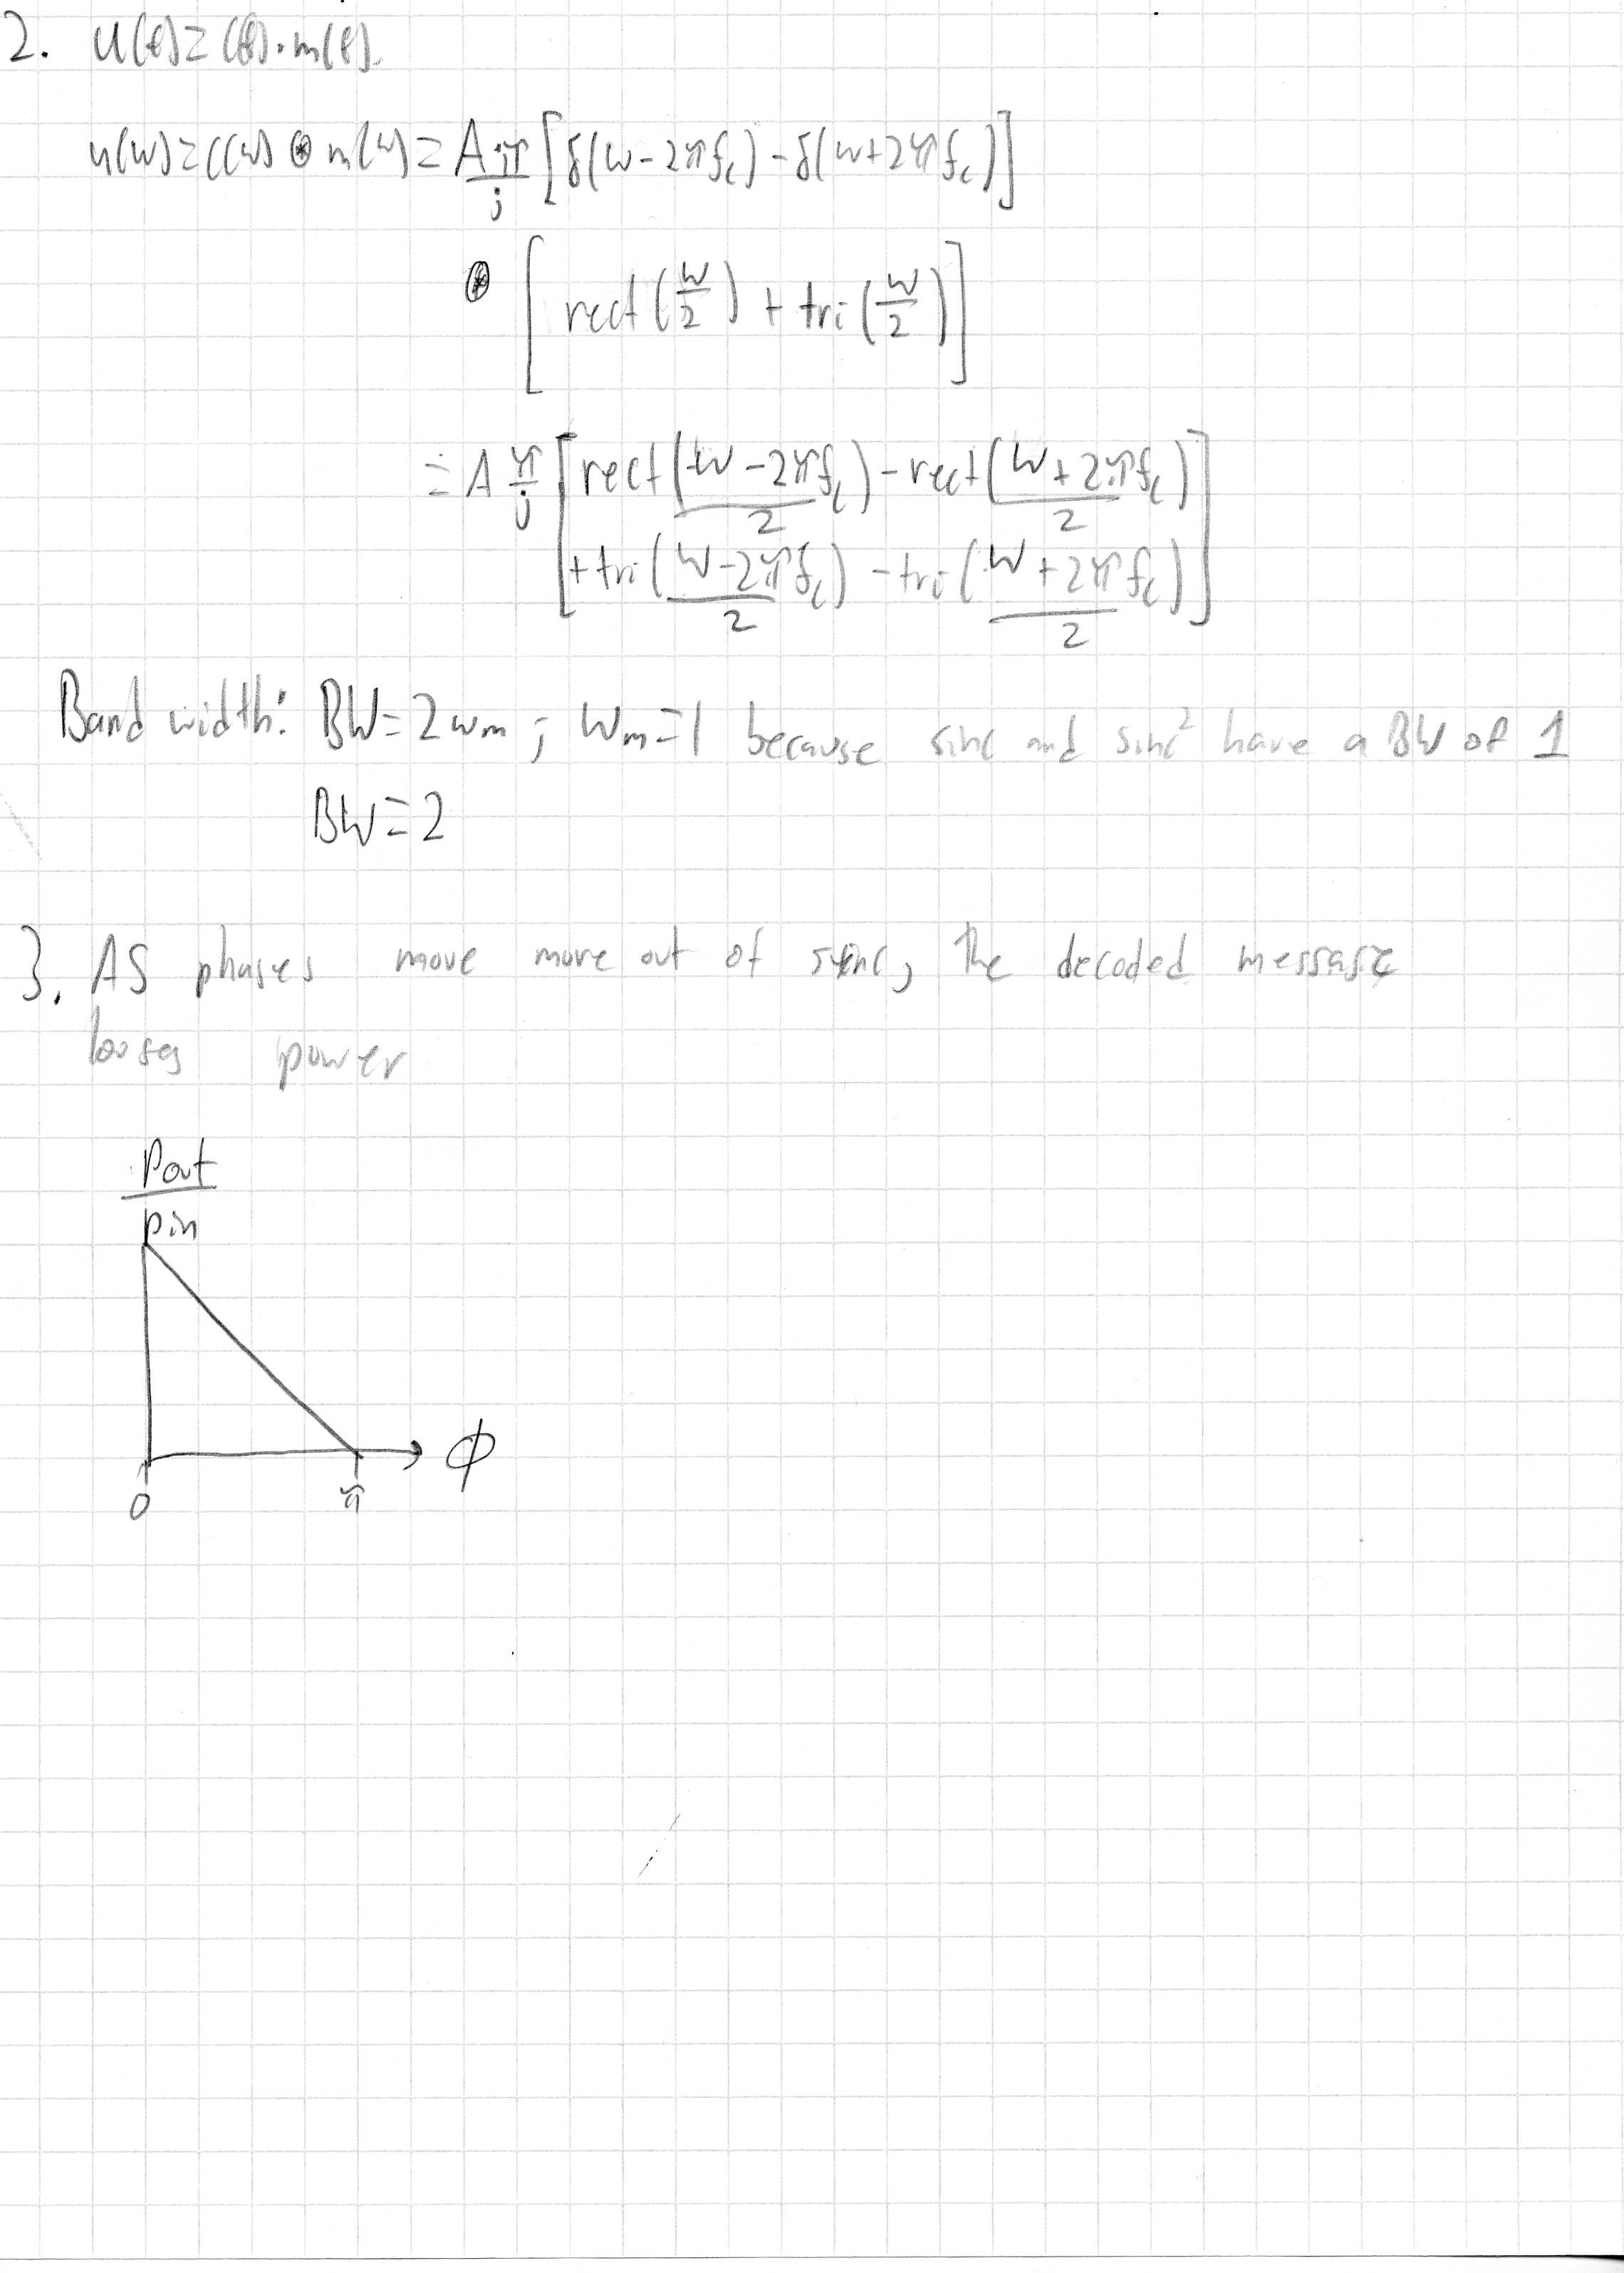 2. u(t)=c(t)·m(t).
u(w)=c(w) ⊛ m(w) = A π/j [δ(w-2πfc) - δ(w+2πfc)]
⊛ [rect(w/2) + tri(w/2)]
= A π/j [rect((w-2πfc)/2) - rect((w+2πfc)/2)
+ tri((w-2πfc)/2) - tri((w+2πfc)/2)]
Band width: BW=2wm ; wm=1 because sinc and sinc² have a BW of 1
BW=2
3. AS phases move more out of sync, the decoded message
looses power
Pout
Pin
0 π ϕ